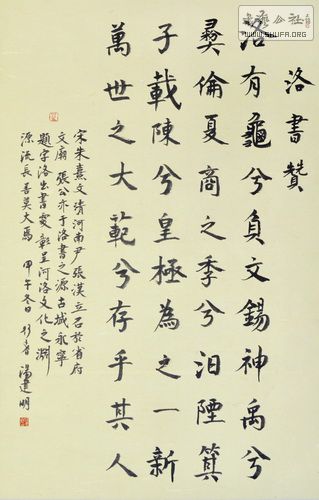 書藝公社
WWW.SHUFA.ORG
洛書贊
洛有龜兮負文錫神禹兮
彝倫夏商之季兮汩陻箕
子載陳兮皇極為之一新
萬世之大範兮存乎其人
宋朱熹文清河南尹張漢立石於省府
文廟張公亦于洛書之源古城永寧
題字洛出書處彰呈河洛文化之淵
源流長善莫大焉甲午冬日湯建明